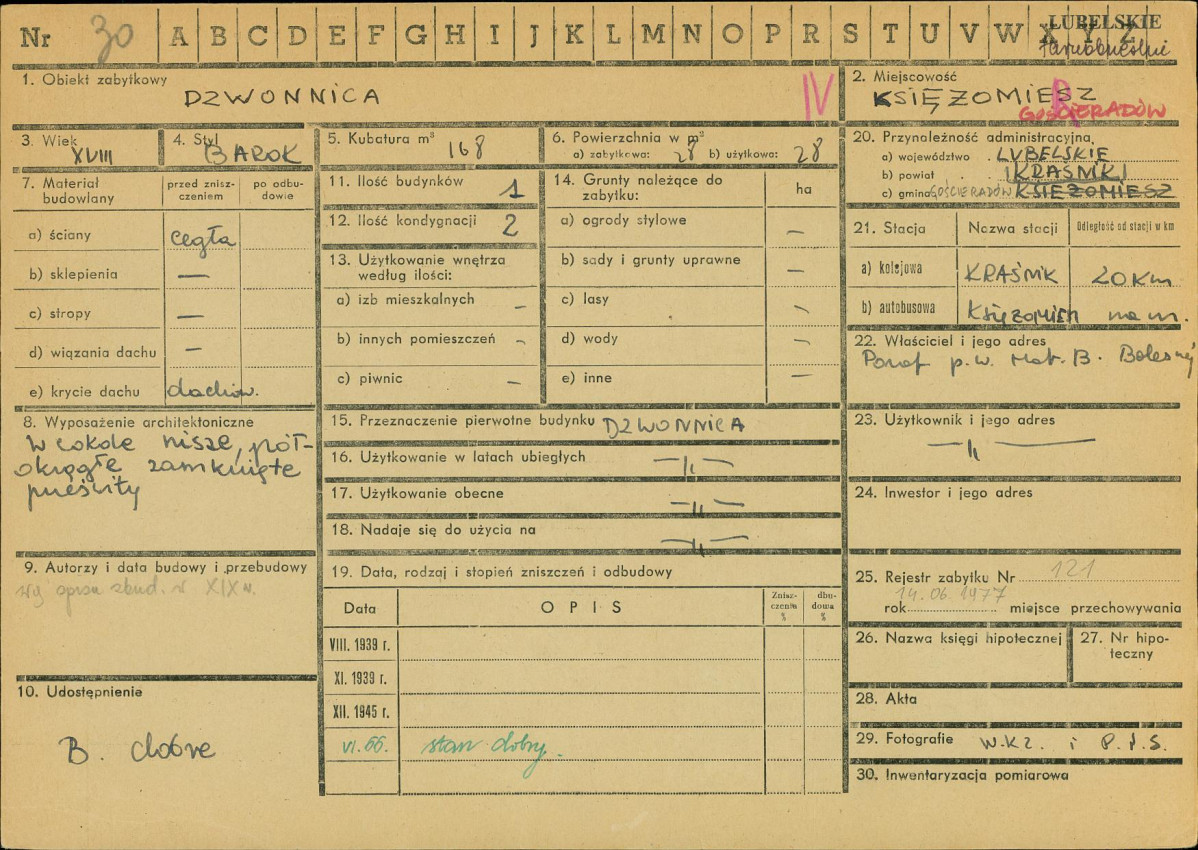 Nr 30 A B C D E F G H I J K L M N O P R S T U V W X Y Z
LUBELSKIE
1. Obiekt zabytkowy
DZWONNICA
IV
2. Miejscowość
KSIĘŻOMIESZ
GOŚCIERADÓW
3. Wiek
XVIII
4. Styl
BAROK
5. Kubatura m³ 168
6. Powierzchnia w m²
a) zabytkowa: 28 b) użytkowa: 28
7. Materiał budowlany
przed znisz-
czeniem
po odbu-
dowie
a) ściany cegła
b) sklepienia —
c) stropy —
d) wiązania dachu —
e) krycie dachu dachów.
8. Wyposażenie architektoniczne
W cokole nisze, pół-
okrągłe zamknięte
prześwity
9. Autorzy i data budowy i przebudowy
wg opisu zbud. w XIX w.
10. Udostępnienie
B. dobre
11. Ilość budynków 1
12. Ilość kondygnacji 2
13. Użytkowanie wnętrza
według ilości:
a) izb mieszkalnych –
b) innych pomieszczeń –
c) piwnic –
14. Grunty należące do
zabytku:
ha
a) ogrody stylowe –
b) sady i grunty uprawne –
c) lasy –
d) wody –
e) inne –
15. Przeznaczenie pierwotne budynku DZWONNICA
16. Użytkowanie w latach ubiegłych —„—
17. Użytkowanie obecne —„—
18. Nadaje się do użycia na —„—
19. Data, rodzaj i stopień zniszczeń i odbudowy
Data
OPIS
Znisz-
czenie
%
dbu-
dowa
%
VIII. 1939 r.
XI. 1939 r.
XII. 1945 r.
VI.66. stan dobry.
20. Przynależność administracyjna
a) województwo LUBELSKIE
b) powiat KRAŚNIK
c) gmina GOŚCIERADÓW KSIĘŻOMIESZ
21. Stacja
Nazwa stacji
Odległość od stacji w km
a) kolejowa KRAŚNIK 20 km
b) autobusowa KSIĘŻOMIESZ na m.
22. Właściciel i jego adres
Paraf p.w. Mat. B. Bolesnej
23. Użytkownik i jego adres
—„—
24. Inwestor i jego adres
25. Rejestr zabytku Nr 121
14.06.1977
rok miejsce przechowywania
26. Nazwa księgi hipotecznej
27. Nr hipo-
teczny
28. Akta
29. Fotografie W.K.Z. i P.I.S.
30. Inwentaryzacja pomiarowa